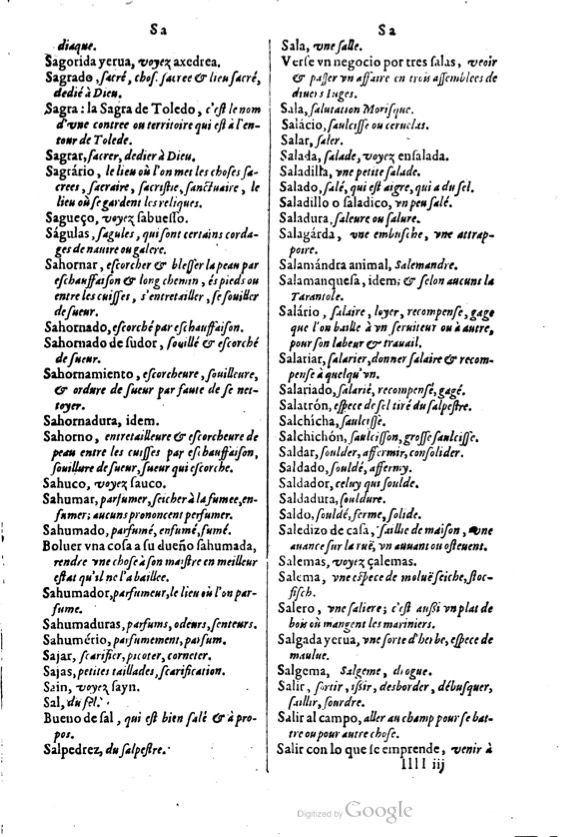 Sa
diaque.
Sagorida yerua, voyez axedrea.
Sagrado, ſacré, choſ. ſacree & lieu ſacré,
dedié à Dieu.
Sagra: la Sagra de Toledo, c'eſt le nom
d'vne contree ou territoire qui eſt à l'en-
tour de Tolede.
Sagrar, ſacrer, dedier à Dieu.
Sagrário, le lieu où l'on met les choſes ſa-
crees, ſacraire, ſacriſtie, ſanctuaire, le
lieu où ſe gardent les reliques.
Sagueço, voyez ſabueſſo.
Ságulas, ſagules, qui ſont certains corda-
ges de nauire ou galere.
Sahornar, eſcorcher & bleſſer la peau par
eſchauffaiſon & long chemin, és pieds ou
entre les cuiſſes, s'entretailler, ſe ſouiller
de ſueur.
Sahornado, eſcorché par eſchauffaiſon.
Sahornado de ſudor, ſouillé & eſcorché
de ſueur.
Sahornamiento, eſcorcheure, ſouilleure,
& ordure de ſueur par faute de ſe net-
toyer.
Sahornadura, idem.
Sahorno, entretailleure & eſcorcheure de
peau entre les cuiſſes par eſchauffaiſon,
ſouillure de ſueur, ſueur qui eſcorche.
Sahuco, voyez ſauco.
Sahumar, parfumer, ſeicher à la fumee, en-
fumer; aucuns prononcent perfumer.
Sahumado, parfumé, enfumé, fumé.
Boluer vna coſa a ſu dueño ſahumada,
rendre vne choſe à ſon maiſtre en meilleur
eſtat qu'il ne l'a baillee.
Sahumador, parfumeur, le lieu où l'on par-
fume.
Sahumaduras, parfums, odeurs, ſenteurs.
Sahumério, parfumement, parfum.
Sajar, ſcarifier, picoter, corneter.
Sajas, petites taillades, ſcarification.
Sain, voyez ſayn.
Sal, du ſel.
Bueno de ſal, qui eſt bien ſalé & à pro-
pos.
Salpedrez, du ſalpeſtre.
Sa
Sala, vne ſalle.
Verſe vn negocio por tres ſalas, veoir
& paſſer vn affaire en trois aſſemblees de
diuers Iuges.
Sala, ſalutation Moriſque.
Salácio, ſaulciſſe ou ceruelas.
Salar, ſaler.
Salada, ſalade, voyez enſalada.
Saladilla, vne petite ſalade.
Salado, ſalé, qui eſt aigre, qui a du ſel.
Saladillo o ſaladico, vn peu ſalé.
Saladura, ſaleure ou ſalure.
Salagárda, vne embuſche, vne attrap-
poire.
Salamándra animal, Salemandre.
Salamanqueſa, idem; & ſelon aucuns la
Tarantole.
Salário, ſalaire, loyer, recompenſe, gage
que l'on baille à vn ſeruiteur ou à autre,
pour ſon labeur & trauail.
Salariar, ſalarier, donner ſalaire & recom-
penſe à quelqu'vn.
Salariado, ſalarié, recompenſé, gagé.
Salatrón, eſpece de ſel tiré du ſalpeſtre.
Salchícha, ſaulciſſe.
Salchichón, ſaulciſſon, groſſe ſaulciſſe.
Saldar, ſoulder, affermir, conſolider.
Saldado, ſouldé, affermy.
Saldador, celuy qui ſoulde.
Saldadura, ſouldure.
Saldo, ſouldé, ferme, ſolide.
Saledizo de caſa, ſaillie de maiſon, vne
auance ſur la ruë, vn auuant ou oſteuent.
Salemas, voyez çalemas.
Salema, vne eſpece de moluë ſeiche, ſtoc-
fiſch.
Salero, vne ſaliere; c'eſt auſſi vn plat de
bois où mangent les mariniers.
Salgada yerua, vne ſorte d'herbe, eſpece de
maulue.
Salgema, Salgeme, drogue.
Salir, ſortir, iſſir, desborder, débuſquer,
ſaillir, ſourdre.
Salir al campo, aller au champ pour ſe bat-
tre ou pour autre choſe.
Salir con lo que ſe emprende, venir à
llll iij
Digitized by Google